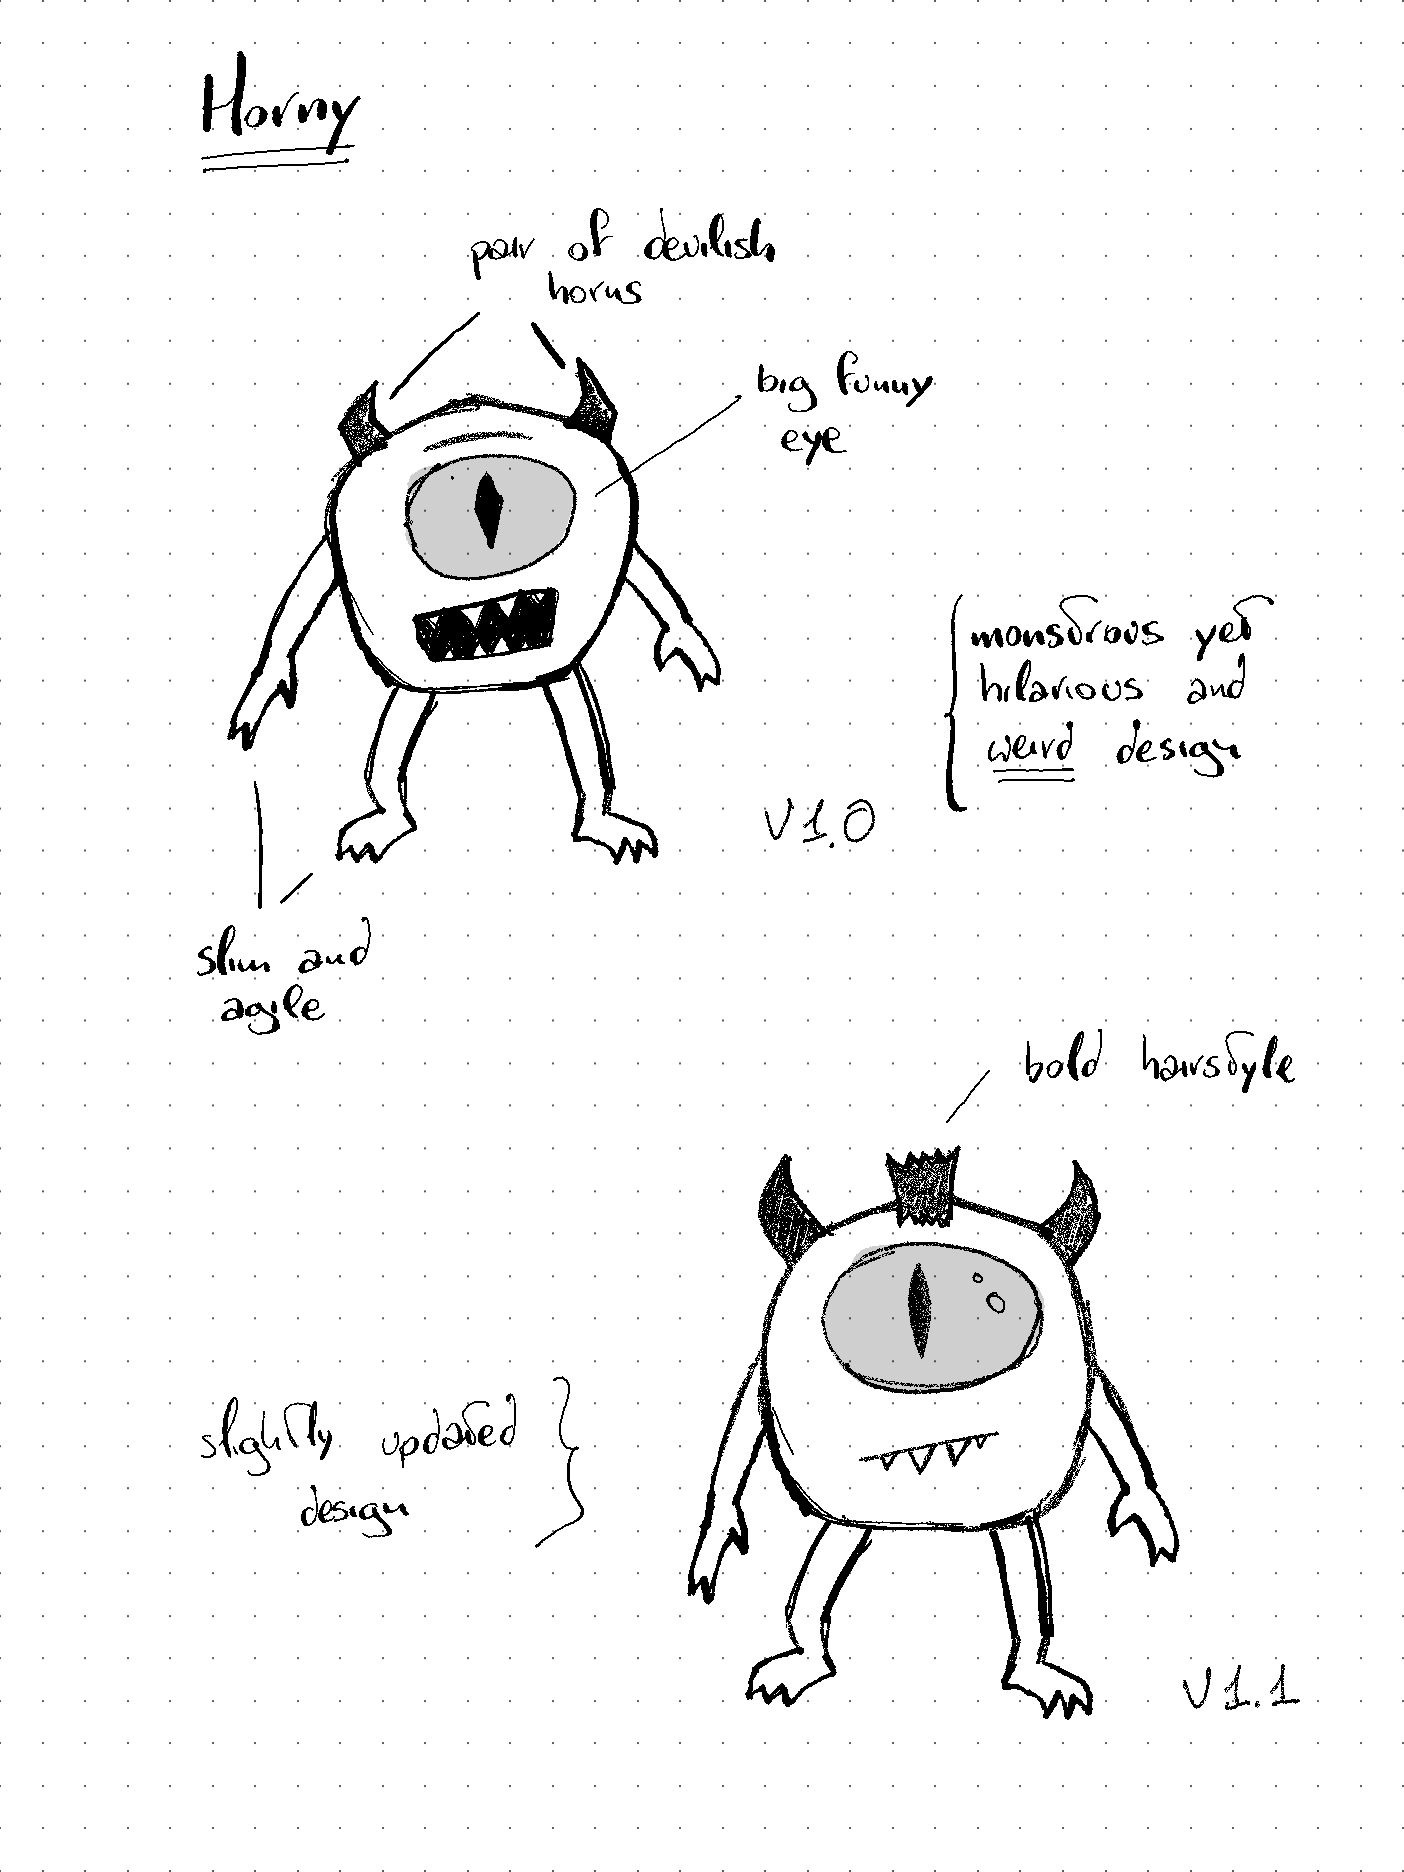 Horny
pair of devilish
horns
big funny
eye
monstrous yet
hilarious and
weird design
V1.0
slim and
agile
bold hairstyle
slightly updated
design
V1.1